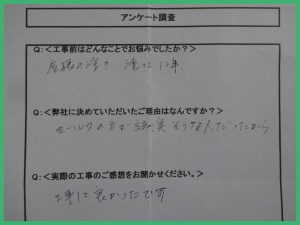 アンケート調査
Q:<工事前はどんなことでお悩みでしたか?>
屋根の浮き、塗って12年、
Q:<弊社に決めていただいたご理由はなんですか?>
セールスの方が誠実そうな人だったから
Q:<実際の工事のご感想をお聞かせください。>
工事して良かったです